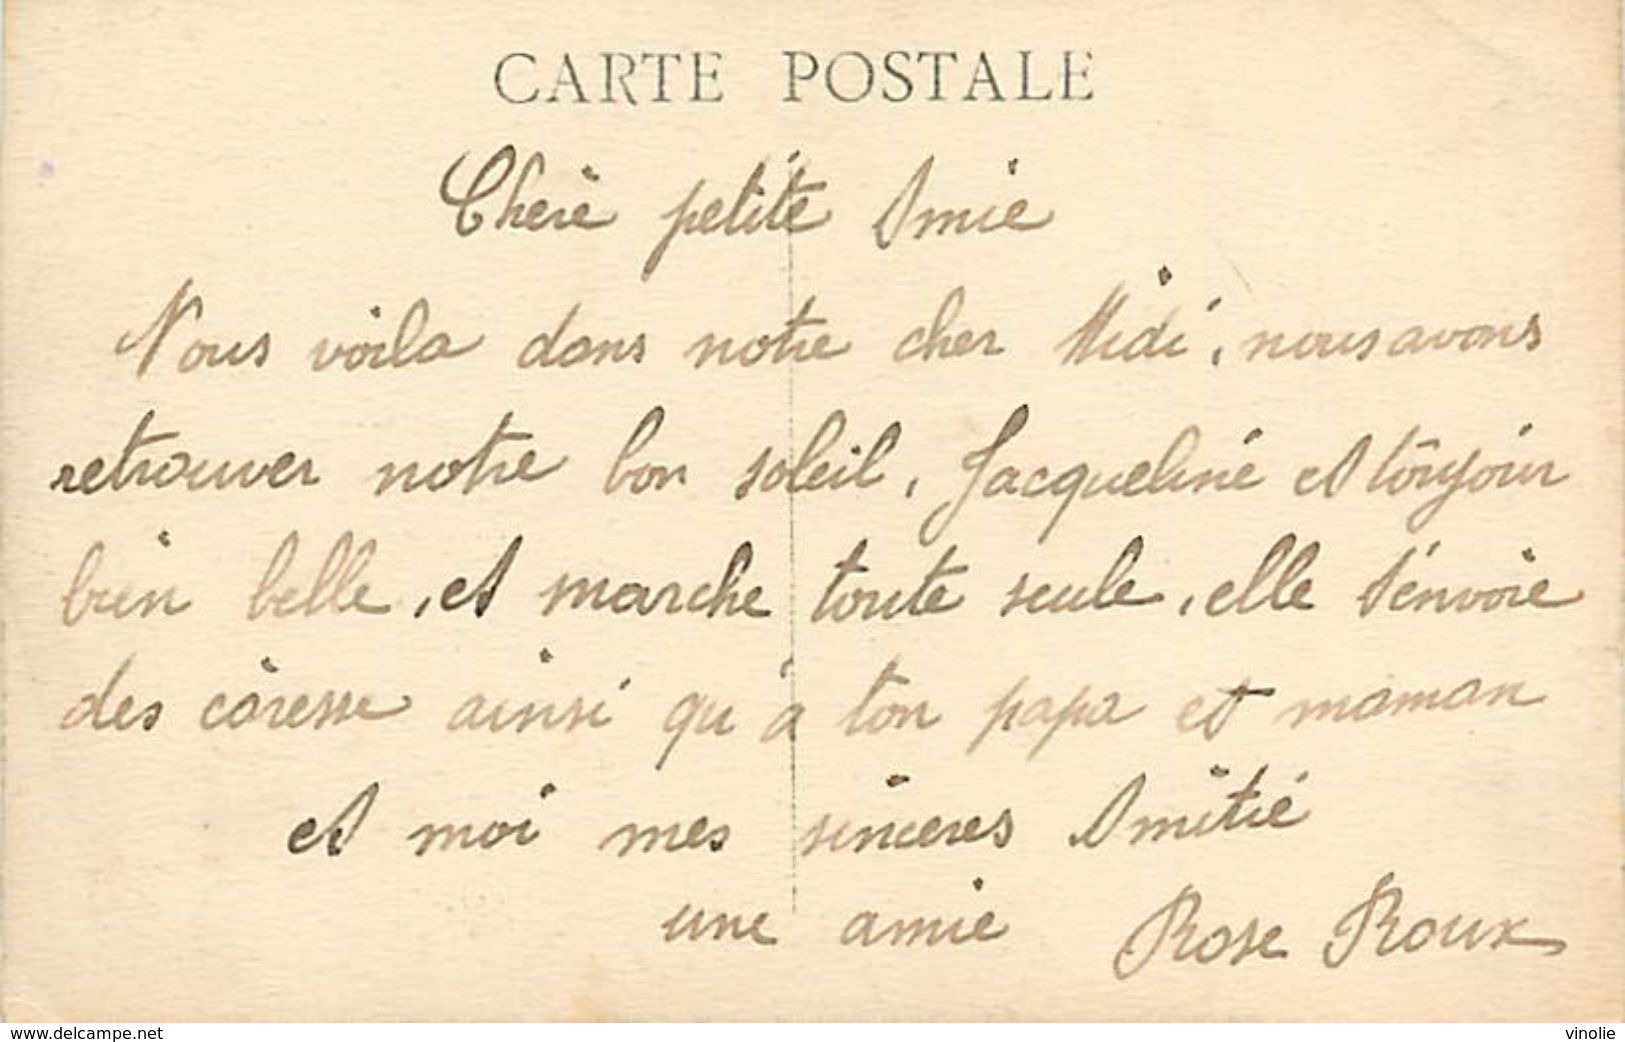 CARTE POSTALE
Chère petite Amie
Nous voila dans notre cher Midi, nous avons
retrouver notre bon soleil, Jacqueline et toujour
bien belle, et marche toute seule, elle t'envoie
des caresse ainsi qu'à ton papa et maman
et moi mes sinceres Amitié
une amie Rose Roux
www.delcampe.net
vinolie